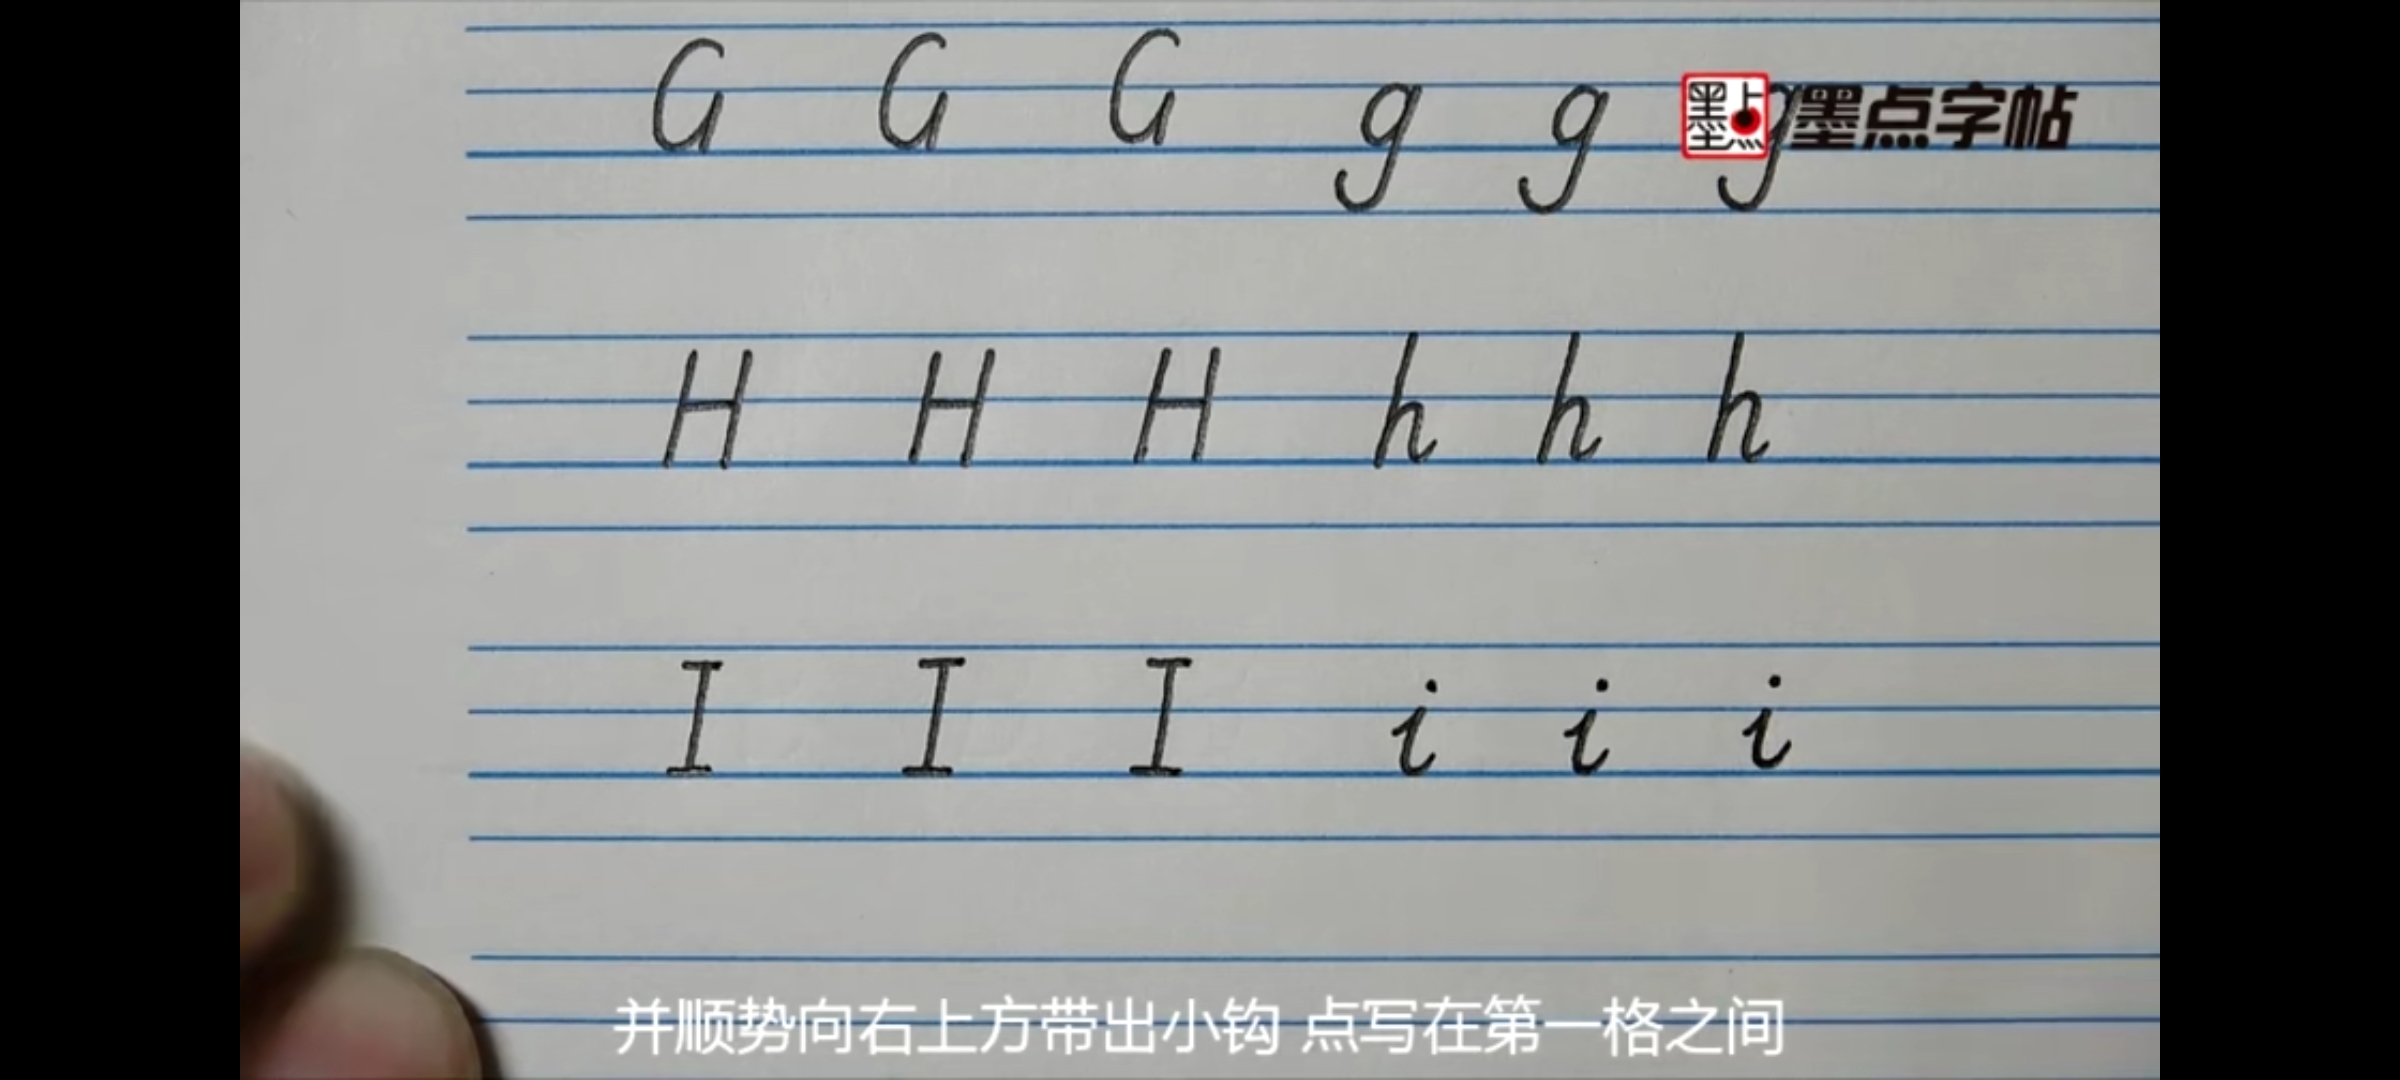 G G G g g g 墨点字帖
H H H h h h
I I I i i i
并顺势向右上方带出小钩 点写在第一格之间